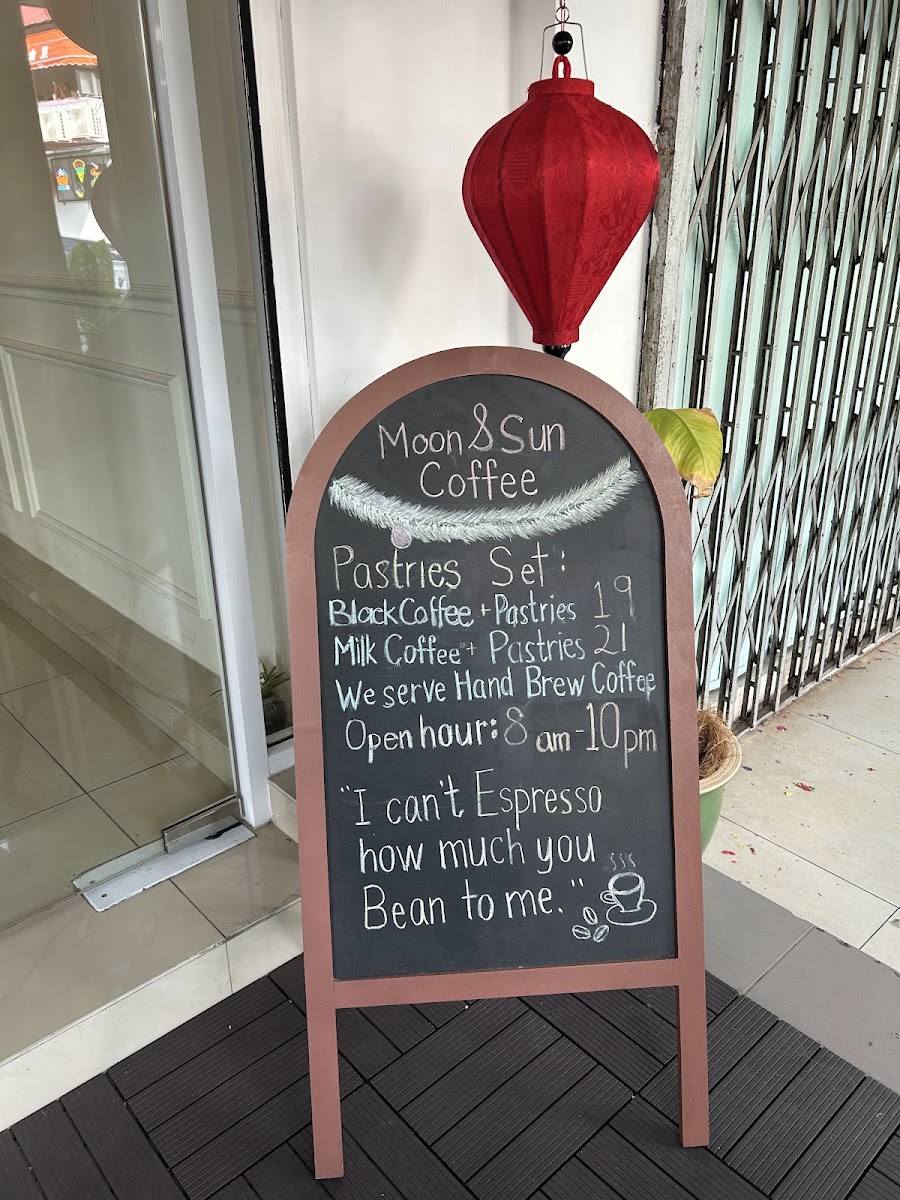 Moon & Sun
Coffee
Pastries Set:
Black Coffee + Pastries 19
Milk Coffee + Pastries 21
We serve Hand Brew Coffee
Open hour: 8 am - 10 pm
"I can't Espresso
how much you
Bean to me."